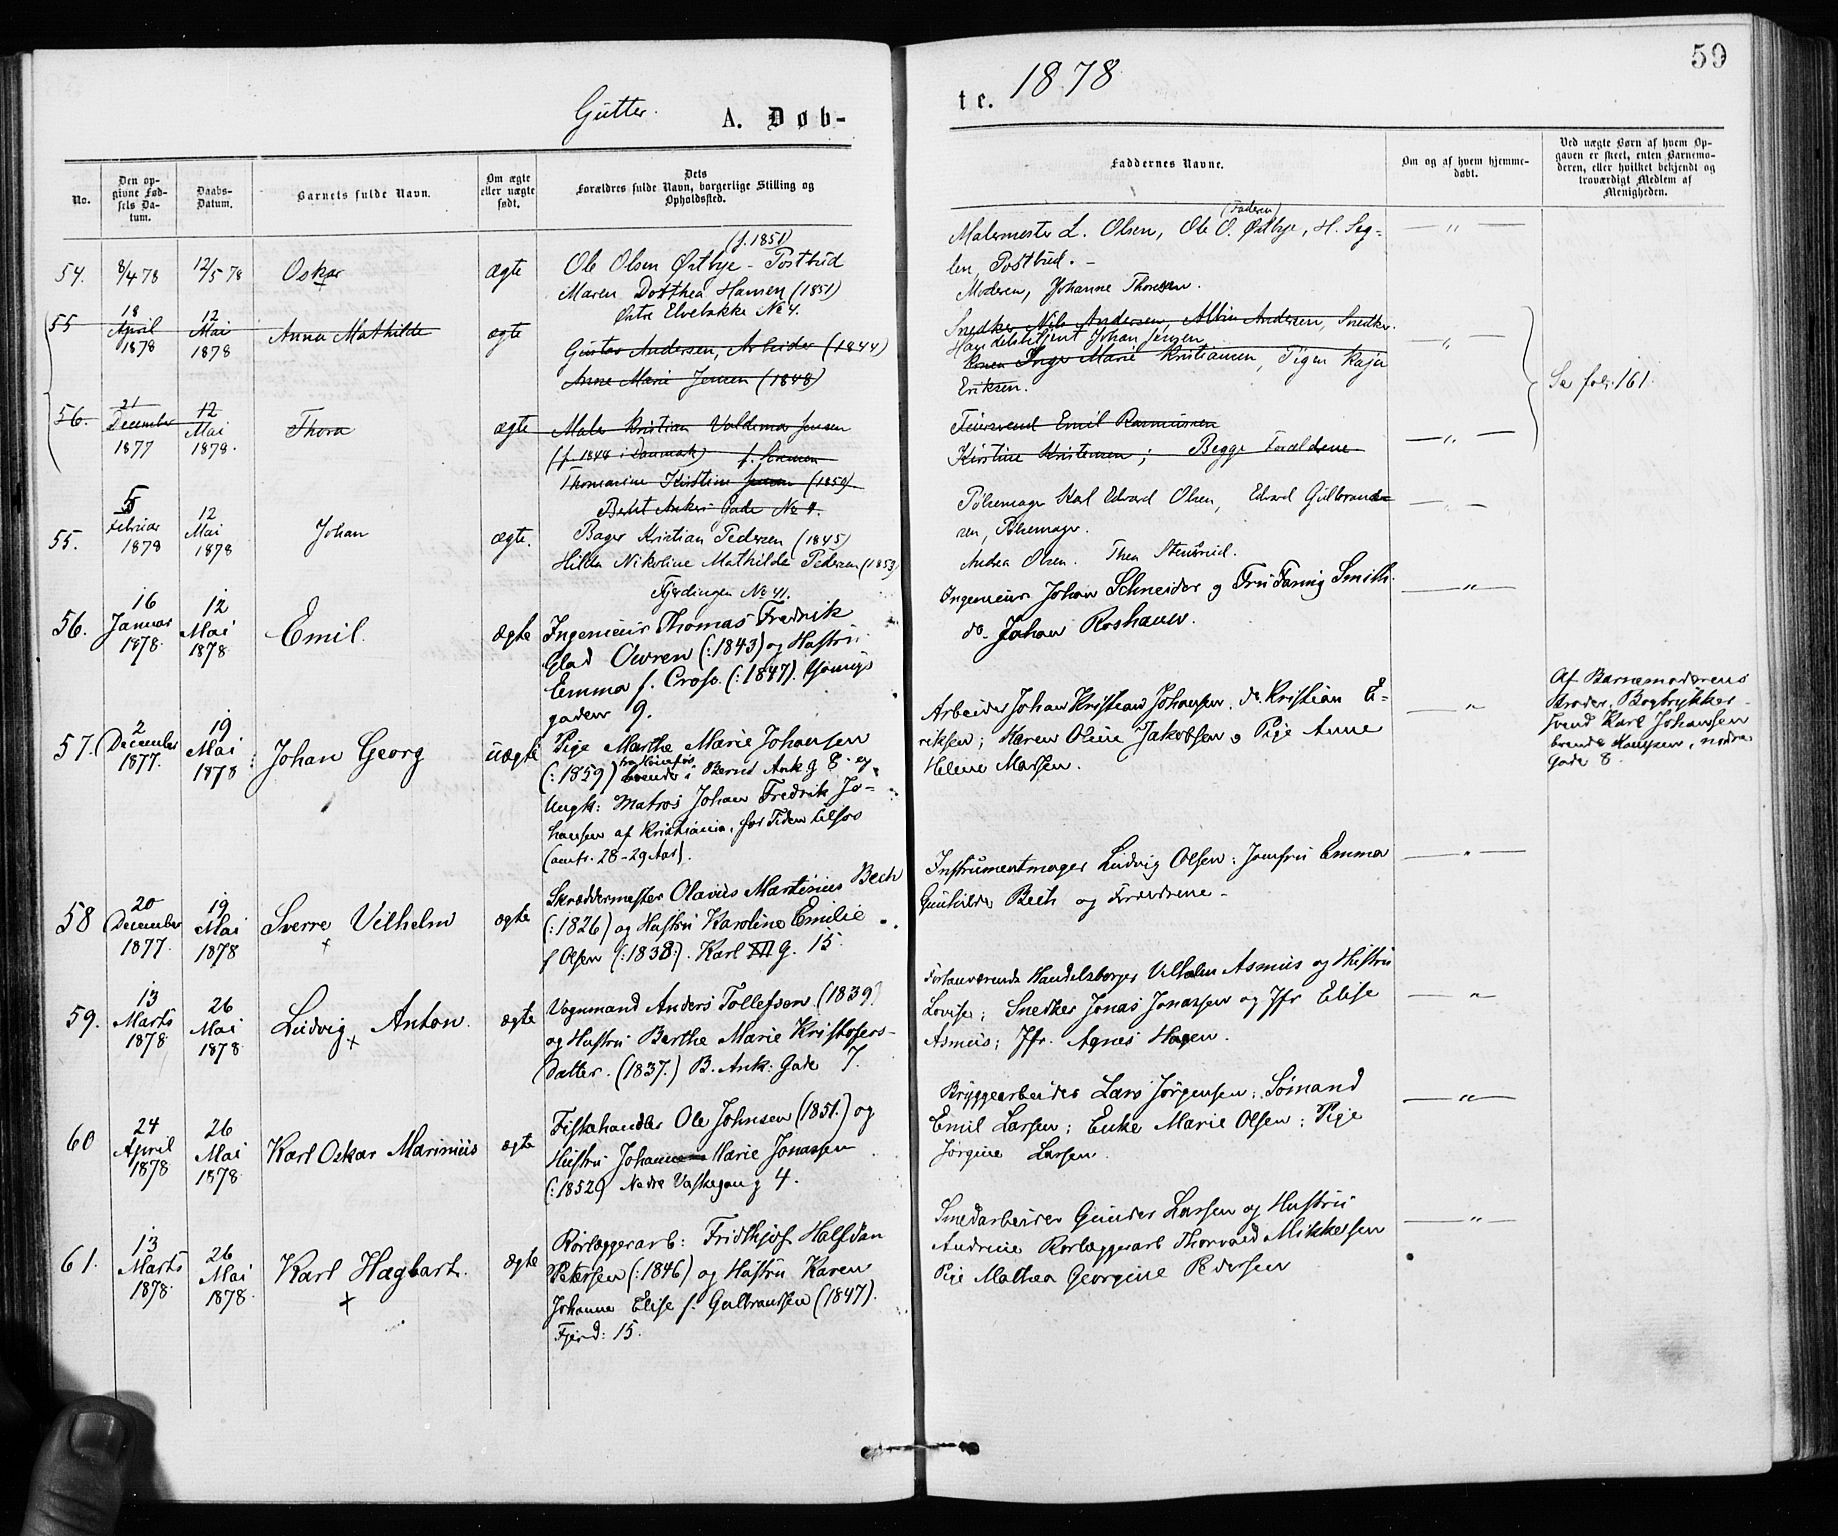 59
Gutter. A. Døb-
te. 1878
No.
Den op-
givne Fød-
sels Da-
tum.
Daabs-
Datum.
Barnets fulde Navn.
Om ægte
eller uægte
født.
Dets
Forældres fulde Navn, borgerlige Stilling og
Opholdssted.
Faddernes Navne.
Om og af hvem hjemme-
døbt.
Ved uægte Børn af hvem Op-
gaven er skeet, enten Barnemo-
deren, eller hvilket bekjendt og
troværdigt Medlem af
Menigheden.
54. 8/4 78 12/5 78 Oskar ægte
(f. 1851)
Ole Olsen Østbye - Postbud
Maren Dorthea Hansen (1851)
Østre Elvebakke No 4.
(Faderen)
Malermester L. Olsen, Ole O. Østbye, H. Seg-
len, Postbud. -
Moderen, Johanne Thoresen.
— " —
55 18 April 1878 12 Mai 1878 Anna Mathilde ægte
Gustav Andersen, Arbeider (1844)
Anne Marie Jensen (1848)
Snedker Nils Andersen, Albin Andersen, Snedker.
Handelsbetjent Johan Jensen
Konen Inge Marie Kristiansen, Pigen Kaja
Eriksen.
"
Se fol. 161.
56. 21 December 1877 12 Mai 1878. Thora ægte
Maler Kristian Valdemar Jensen
(f. 1848 i Danmark)
Thomasine Kirstine Jensen (1850).
Bernt Ankers Gade No 9.
Feiersvend Emil Rasmussen
Kirstine Kristensen; Begge Forældrene
— " —
55. 5 Februar 1878 12 Mai 1878 Johan ægte.
Bager Kristian Pedersen (1845)
Hilda Nikoline Mathilde Pedersen (1853)
Fjerdingen No 41.
Pølsemager Karl Edvard Olsen, Edvard Gulbrand-
sen, Pølsemager.
Andrea Olsen. Thea Stensrud.
— " —
56. 16 Januar 1878. 12 Mai 1878 Emil. ægte
Ingenieur Thomas Fredrik
Glad Owren (:1843) og Hustru
Emma f. Cross. (:1847).
gaden 9.
Ingenieur Johan Schneider og Fru Fanny Smith.
do. Johan Roshauw.
— " —
57. 2 December 1877. 19 Mai 1878 Johan Georg uægte
Pige Marthe Marie Johansen
(:1859) boende i Bernt Ank. g 8. og
Ungk: Matros Johan Fredrik Jo-
hansen af Kristiania, for Tiden tilsøs
(omtr. 28-29 Aar).
Arbeider Johan Kristian Johansen, do Kristian E-
riksen; Karen Oline Jakobsen, Pige Anne
Helene Marsen.
— " —
Af Barnemoderens
Broder, Bogtrykker-
svend Karl Johansen
boende Hansen, nedre
Gade 8.
58 20 December 1877. 19 Mai 1878 Sverre Vilhelm ægte
Skræddermester Olavus Martinius Bech
(:1826) og Hustru Karoline Emilie
f Olsen (:1838:). Karl XII g. 15.
Instrumentmager Ludvig Olsen; Jomfru Emma
Gunhilde Bech og Forældrene -
— " —
59. 13 Marts 1878 26 Mai 1878 Ludvig Anton. ægte
Vognmand Anders Tollefsen. (1839)
og Hustru Berthe Marie Kristofers-
datter. (1837.) B. Ank: Gade 7.
Forhenværende Handelsborger Vilhelm Asmus og Hustru
Lovise; Snedker Jonas Jonassen og Jfr Elise
Asmus; Jfr. Agnes Hagen.
— " —
60 24 April 1878 26 Mai 1878. Karl Oskar Marinius ægte
Fiskehandler Ole Johnsen (1851.) og
Hustru Johanne Marie Jonassen
(:1852) Nedre Vaskegang 4.
Bryggearbeider Lars Jørgensen; Sømand
Emil Larsen; Enke Marie Olsen; Pige
Jørgine Larsen.
— " —
61. 13 Marts 1878. 26 Mai 1878. Karl Hagbart. ægte
Rørlæggerarb: Fridthjof Halfdan
Petersen (:1846) og Hustru Karen
Johanne Elise f. Gulbranssen (1847).
Fjerd: 15.
Smedarbeider Gunder Larsen og Hustru
Andrine Rørlæggerarb Thorvald Mikkelsen
Pige Mathea Georgine Pedersen
— " —